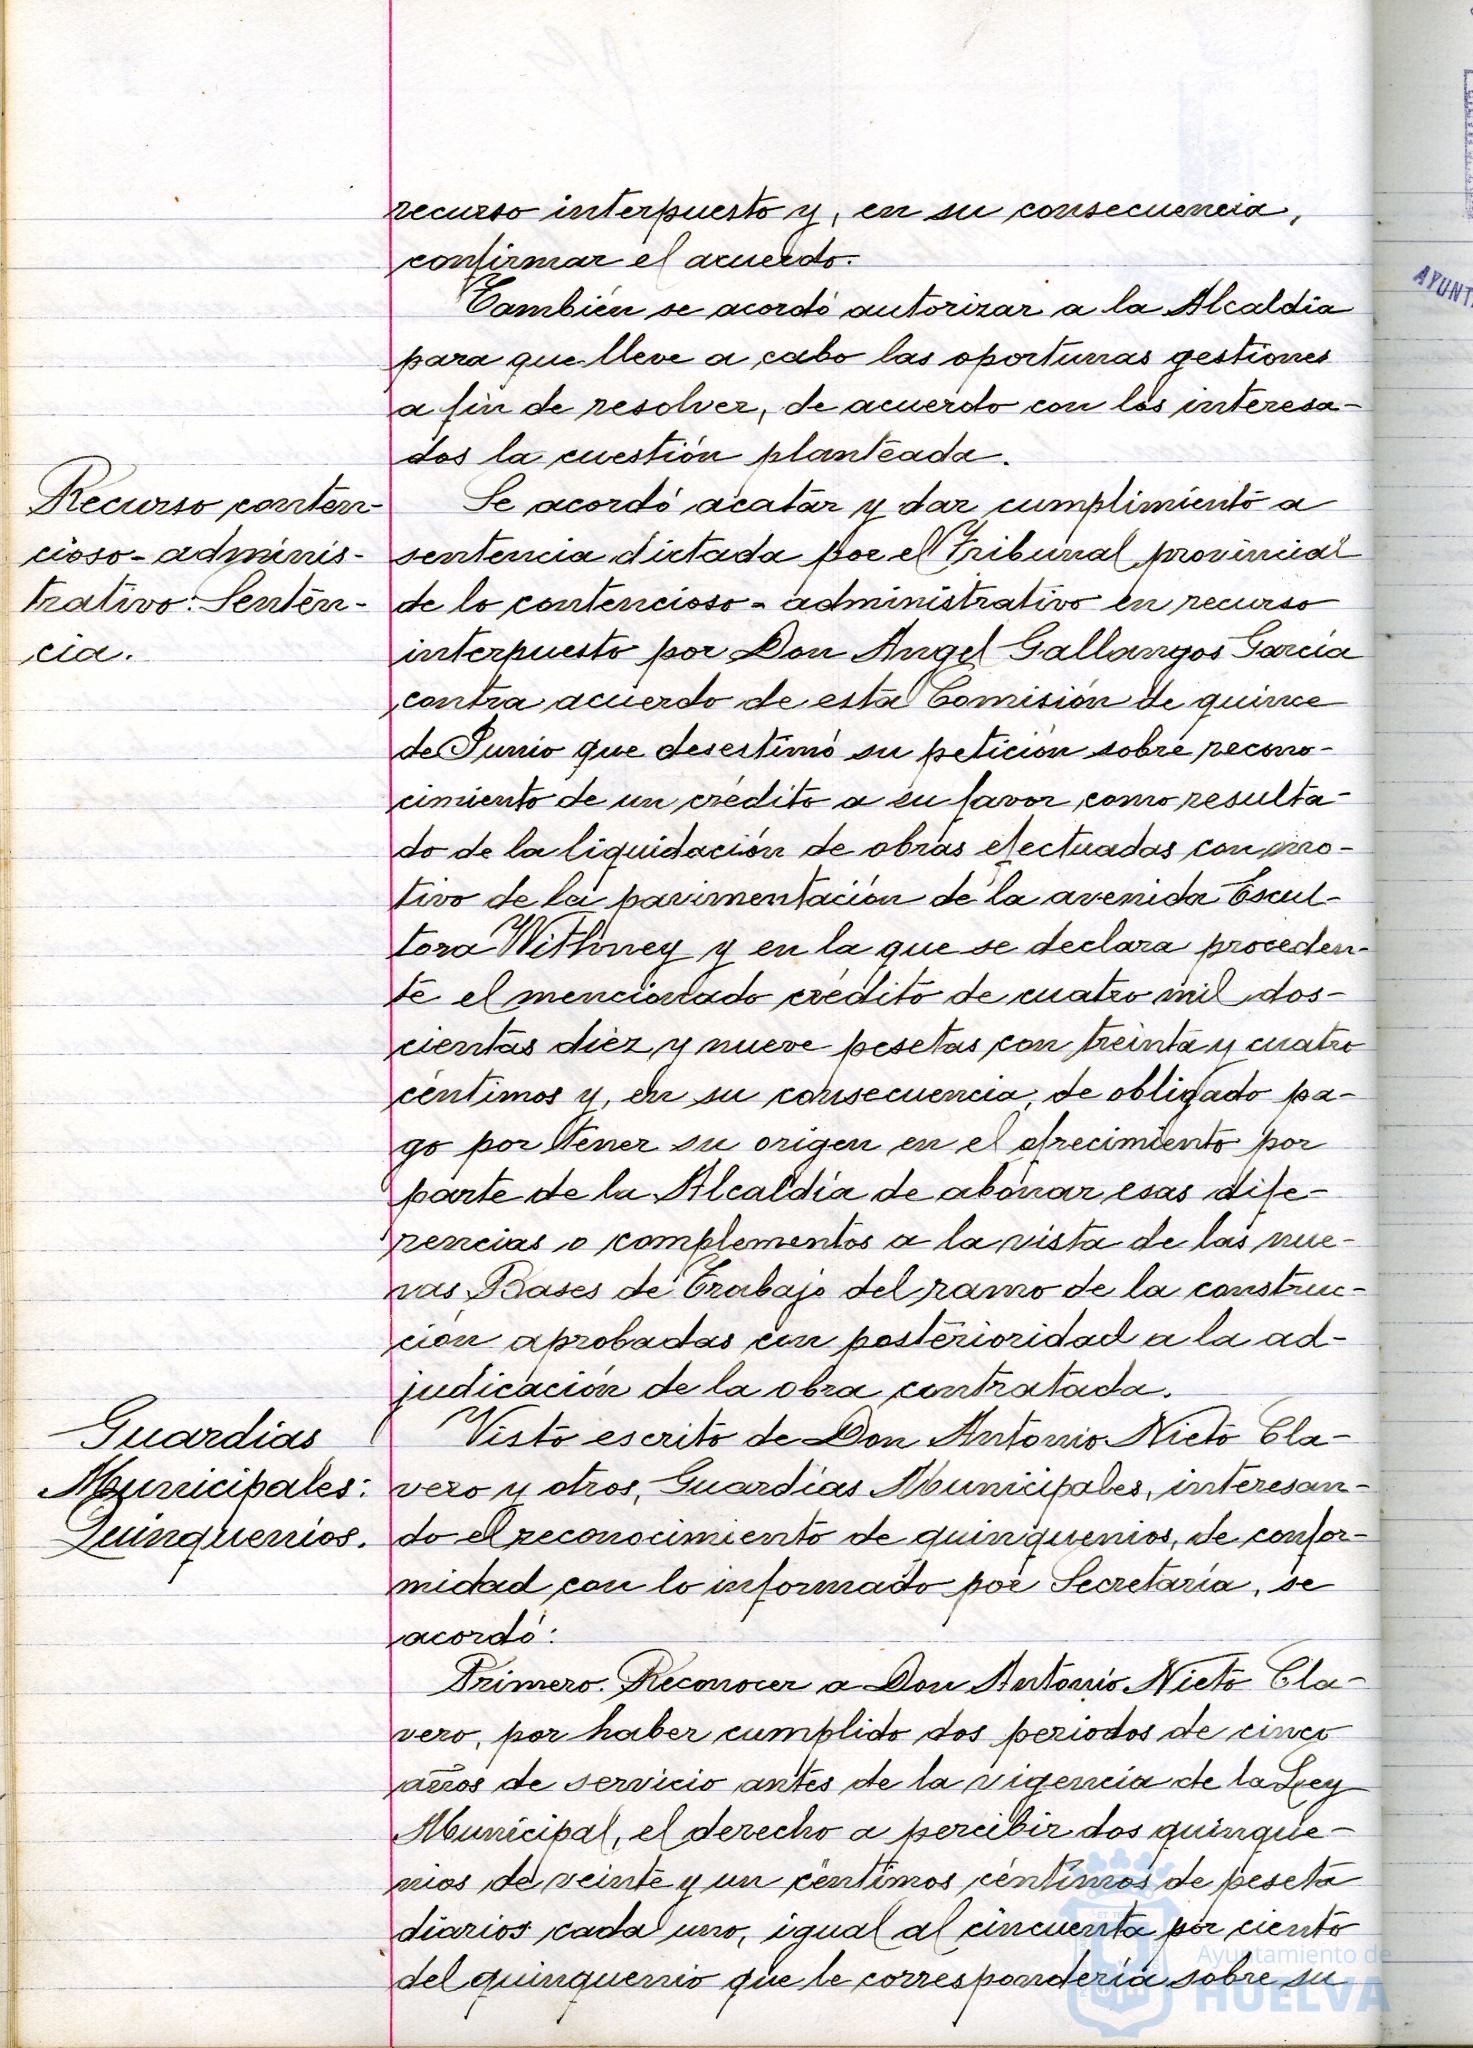 recurso interpuesto y, en su consecuencia,
confirmar el acuerdo.
También se acordó autorizar a la Alcaldía
para que lleve a cabo las oportunas gestiones
a fin de resolver, de acuerdo con los interesa-
dos la cuestión planteada.
Recurso conten-
cioso-adminis-
trativo: Senten-
cia.
Se acordó acatar y dar cumplimiento a
sentencia dictada por el Tribunal provincial
de lo contencioso-administrativo en recurso
interpuesto por Don Angel Gallangos García
contra acuerdo de esta Comisión de quince
de Junio que desestimó su petición sobre recono-
cimiento de un crédito a su favor como resulta-
do de la liquidación de obras efectuadas con mo-
tivo de la pavimentación de la avenida Escul-
tora Withney y en la que se declara proceden-
te el mencionado crédito de cuatro mil dos-
cientas diez y nueve pesetas con treinta y cuatro
céntimos y, en su consecuencia, de obligado pa-
go por tener su origen en el ofrecimiento por
parte de la Alcaldía de abonar esas dife-
rencias o complementos a la vista de las nue-
vas Bases de Trabajo del ramo de la construc-
ción aprobadas con posterioridad a la ad-
judicación de la obra contratada.
Guardias
Municipales:
Quinquenios.
Visto escrito de Don Antonio Nieto Cla-
vero y otros, Guardias Municipales, interesan-
do el reconocimiento de quinquenios, de confor-
midad con lo informado por Secretaría, se
acordó:
Primero. Reconocer a Don Antonio Nieto Cla-
vero, por haber cumplido dos periodos de cinco
años de servicio antes de la vigencia de la Ley
Municipal, el derecho a percibir dos quinque-
nios de veinte y un céntimos céntimos de peseta
diarios cada uno, igual al cincuenta por ciento
del quinquenio que le correspondería sobre su
Ayuntamiento de
HUELVA
AYUNT